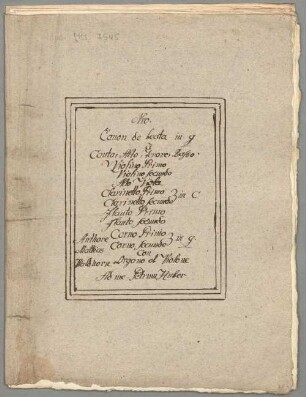 No.
Canon de beata in g
Canto, Alto, Tenore, Basso.
Violino Primo
Violino secundo
Alto Viola
Clarinetto Primo
Clarinetto secundo } in C
Flauto Primo
Flauto secundo
Authore Corno Primo
Corno secundo } in g
Con
Organo et Violone
Ad me Huber